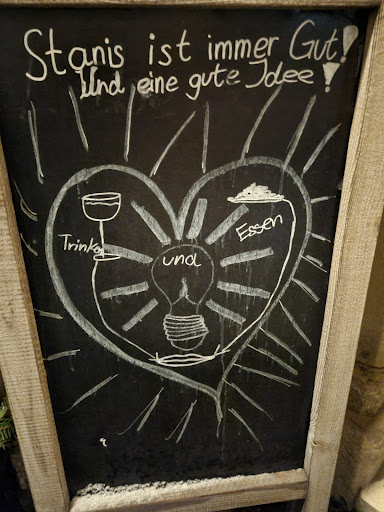 Stanis ist immer Gut!
Und eine gute Idee!
Trinken und Essen